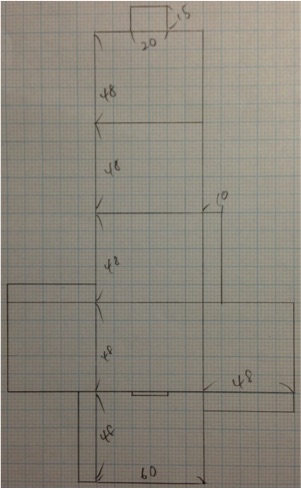 15
20
48
48
10
48
48
48
48
60